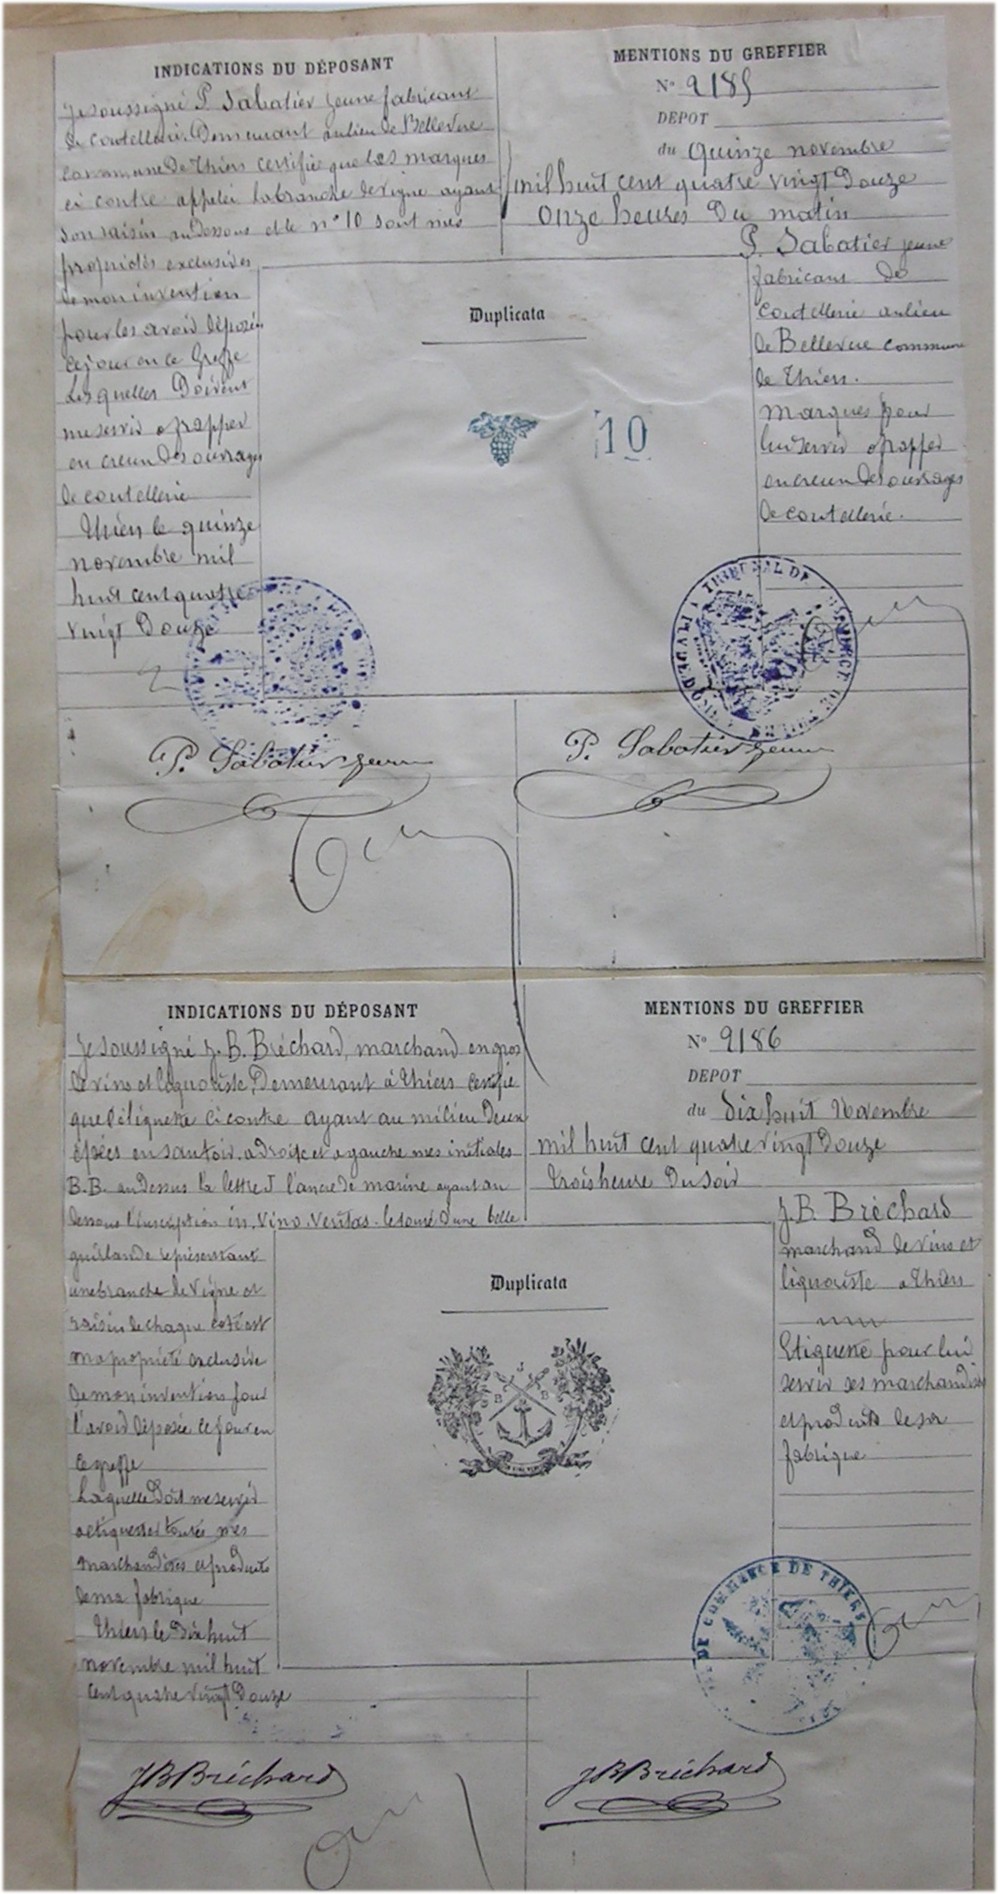 INDICATIONS DU DÉPOSANT
Je soussigné P. Sabatier jeune fabricant
de coutellerie. Demeurant au lieu de Bellevue
commune de Thiers certifie que les marques
ci contre appelée la branche de vigne ayant
son raisin au dessous et le n° 10 sont mes
propriétés exclusives
de mon invention
pour les avoir déposées
ce jour en ce Greffe
Lesquelles Doivent
me servir a frapper
en creux des ouvrages
de coutellerie
Thiers le quinze
novembre mil
huit cent quatre
vingt Douze
MENTIONS DU GREFFIER
N° 2185
DEPOT
du Quinze novembre
mil huit cent quatre vingt Douze
Onze heures Du matin
P. Sabatier jeune
fabricant de
coutellerie au lieu
de Bellevue commune
de Thiers.
Marques pour
lui servir a frapper
en creux des ouvrages
de coutellerie.
Duplicata
10
TRIBUNAL DE
P. Sabatier jeune
P. Sabatier jeune
INDICATIONS DU DÉPOSANT
Je soussigné J. B. Bréchard, marchand en gros
de vins et liquoriste, Demeurant à Thiers certifie
que l'étiquette ci contre ayant au milieu Deux
épées en sautoir. a Droite et a gauche mes initiales
B.B. au dessus la lettre J l'ancre de marine ayant au
dessous l'inscription in. Vino. Veritas. le tout d'une belle
guirlande représentant
une branche de vigne et
raisin de chaque coté est
ma propriété exclusive
de mon invention pour
l'avoir déposée ce jour en
ce greffe
Laquelle Doit me servir
a étiquetter toutes mes
marchandises et produits
de ma fabrique
Thiers le Dix huit
novembre mil huit
cent quatre vingt Douze
MENTIONS DU GREFFIER
N° 2186
DEPOT
du Dix huit Novembre
mil huit cent quatre vingt Douze
trois heure Du soir
J. B. Bréchard
marchand de vins et
liquoriste a Thiers
Etiquette pour lui
servir ses marchandises
et produits de sa
fabrique
Duplicata
J
B B
DE COMMERCE DE THIERS
JB Bréchard
JB Bréchard